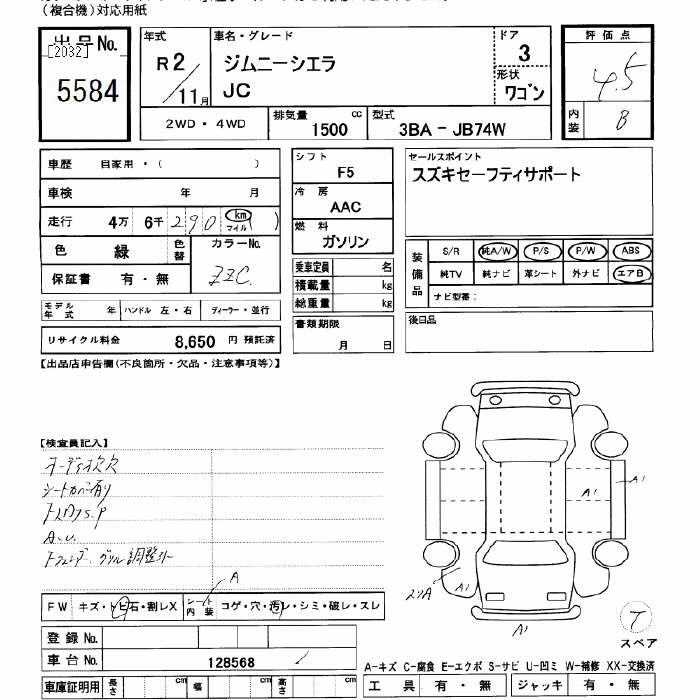 （複合機）対応用紙
出品No.
[2032]
5584
年式
R2/11月
車名・グレード
ジムニーシエラ
JC
ドア
3
形状
ワゴン
評価点
4.5
内装
B
2WD・4WD
排気量
1500 cc
型式
3BA - JB74W
車歴 自家用・（ ）
車検 年 月
走行 4万 6千 290 km マイル ( )
色 緑 色替
カラーNo.
ZZC
保証書 有・無
モデル年式 年 ハンドル 左・右 ディーラー・並行
リサイクル料金 8,650 円 預託済
シフト
F5
冷房
AAC
燃料
ガソリン
乗車定員 名
積載量 kg
総重量 kg
書類期限
月 日
セールスポイント
スズキセーフティサポート
装備品
S/R 純A/W P/S P/W ABS
純TV 純ナビ 革シート 外ナビ エアB
ナビ型番：
後日品
【出品店申告欄(不良箇所・欠品・注意事項等)】
【検査員記入】
オーディオ欠
シートカバー有り
A.U.
A
FW キズ・トビ石・割レX シート内装 コゲ・穴・汚レ・シミ・破レ・スレ
登録No.
車台No. 128568
車庫証明用 長さ cm 幅 cm 高さ cm
A1
A1
A1
T
スペア
A-キズ C-腐食 E-エクボ S-サビ U-凹ミ W-補修 XX-交換済
工具 有・無 ジャッキ 有・無